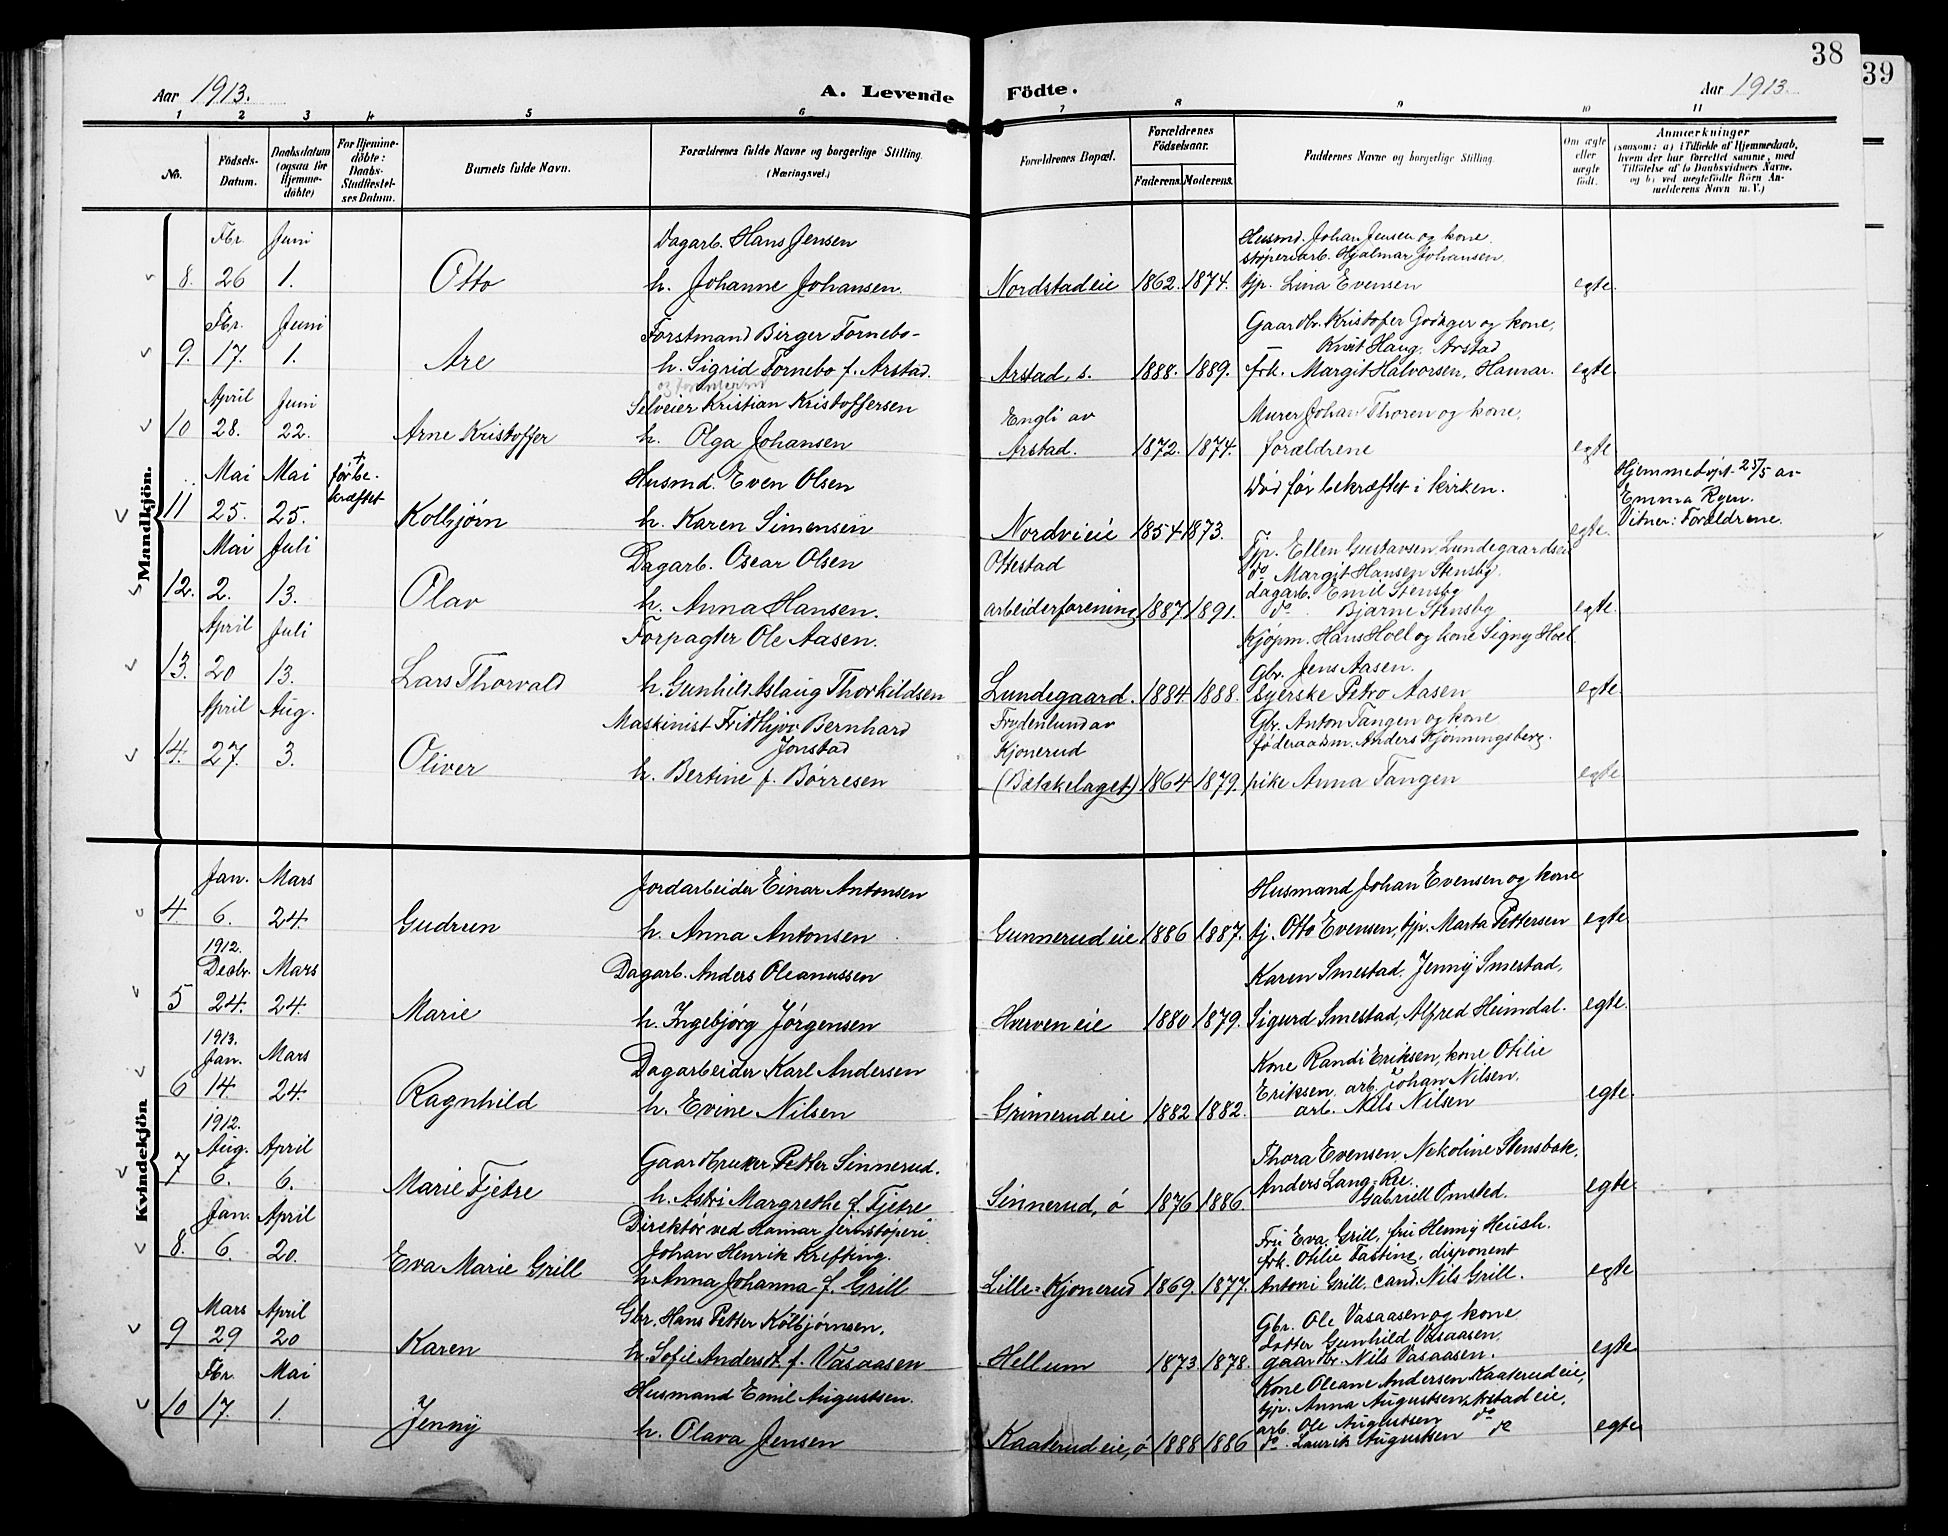 38
39
Aar 1913.
A. Levende Födte.
Aar 1913.
1 2 3 4 5 6 7 8 9 10 11
No.
Födsels-Datum.
Daabsdatum (ogsaa for Hjemmedöbte)
For Hjemmedöbte: Daabs-Stadfæstelses Datum.
Barnets fulde Navn.
Forældrenes fulde Navne og borgerlige Stilling. (Næringsvei.)
Forældrenes Bopæl.
Forældrenes Födselsaar.
Faderens. Moderens.
Faddernes Navne og borgerlige Stilling.
Om ægte eller uægte födt.
Anmærkninger
(saasom: a) i Tilfælde af Hjemmedaab, hvem der har forrettet samme, med Tilföielse af to Daabsvidners Navne, og b) ved uægtefödte Börn Anmelderens Navn m. V.)
Mandkjön.
Fbr. Juni
Dagarb. Hans Jensen
Husmd. Johan Jensen og kone.
støperiarb. Hjalmar Johansen.
8. 26 1. Otto h. Johanne Johansen. Nordstadeie 1862. 1874. tjp. Lina Evensen egte.
Fbr. Juni
Forstmand Birger Tornebo-
Gaardbr. Kristofer Godager og kone,
Knut Haug, Arstad
9. 17. 1. Are h. Sigrid Tornebo f. Arstad. Arstad, s. 1888. 1889. frk. Margit Halvorsen, Hamar. egte
April Juni
Selveier Kristian Kristoffersen
Engli av
Murer Johan Thoren og kone,
10 28. 22. Arne Kristoffer h. Olga Johansen Arstad. 1872. 1874. forældrene egte
Mai Mai + før be-
kræftet
Husmd. Even Olsen
Død før bekræftet i kirken.
Hjemmedøpt 25/5 av
Emma Ryen.
Vitner: Forældrene.
11 25. 25. Kolbjørn h. Karen Simensen Nordvieie 1854 1873. egte.
Mai Juli
Dagarb. Oscar Olsen
Ottestad
Tjp. Ellen Gustavsen Lundegaardseie
do Margit Hansen Stensby.
dagarb. Emil Stensby
12. 2. 13. Olav h. Anna Hansen. arbeiderforening 1887. 1891. do Bjarne Stensby egte.
April Juli
Forpagter Ole Aasen.
Kjøpm. Hans Hoel og kone Signy Hoel
Gbr. Jens Aasen.
13. 20 13. Lars Thorvald h. Gunhild Aslaug Thorkildsen Lundegaard. 1884. 1888. syerske Petro Aasen egte
April Aug.
Maskinist Fridthjov Bernhard
Jonstad
Frydenlund av
Kjonerud
Gbr. Anton Tangen og kone
føderaadsm. Anders Kjonningsberg.
14. 27. 3. Oliver h. Bertine f. Børresen (Bækkelaget) 1864 1879. pike Anna Tangen egte
Kvindekjön
Jan. Mars
Jordarbeider Einar Antonsen
Husmand Johan Evensen og kone
4. 6. 24. Gudrun h. Anna Antonsen Gunnerudeie 1886 1887. tj. Otto Evensen, tjp. Marta Pettersen egte
1912.
Decbr. Mars
Dagarb. Anders Oleanussen
Karen Smestad, Jenny Smestad,
5 24. 24. Marie h. Ingebjørg Jørgensen Hverven eie 1880 1879. Sigurd Smestad, Alfred Heimdal. egte.
1913.
Jan. Mars
Dagarbeider Karl Andersen
Kone Randi Eriksen, kone Otilie
Eriksen, arb. Johan Nilsen,
6 14. 24. Ragnhild h. Evine Nilsen Grimerudeie 1882 1882. arb. Nils Nilsen egte.
1912.
Aug. April
Gaardbruker Petter Sinnerud.
Thora Evensen, Nekoline Stensbak,
Anders Lang-Ree.
7 6. 6. Marie Fjetre h. Astri Margrethe f. Fjetre Sinnerud, ø 1876 1886. Gabriell Omsted. egte.
Jan. April
Direktør ved Hamar jernstøperi
Johan Henrik Krefting.
Fru Eva Grill, fru Henny Heush.
frk. Otilie Fasting, disponent
8. 6. 20. Eva Marie Grill h. Anna Johanna f. Grill Lille-Kjonerud 1869. 1877. Antoni Grill. cand. Nils Grill. egte
Mars April
Gbr. Hans Petter Kolbjørnsen,
Gbr. Ole Vasaasen og kone
Dotter Gunhild Vasaasen.
9 29 20 Karen h. Sofie Andersdt. f. Vasaasen Hellum 1873 1878. gaardbr. Nils Vasaasen. egte
Fbr. Mai
Husmand Emil Augustsen.
Kone Oleane Andersen Kaaterudeie,
tjp. Anna Augustsen, Arstadeie,
arb. Ole Augustsen do
10 17. 1. Jenny h. Olava Jensen Kaaterudeie, ø 1888 1886 do. Laurik Augustsen do egte